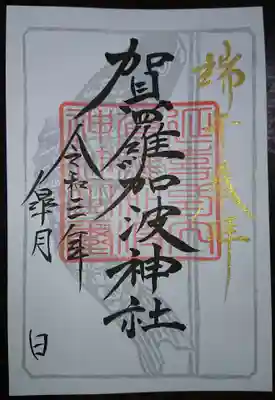 端午奉拝
賀羅加波神社
令和三年
皐月　日